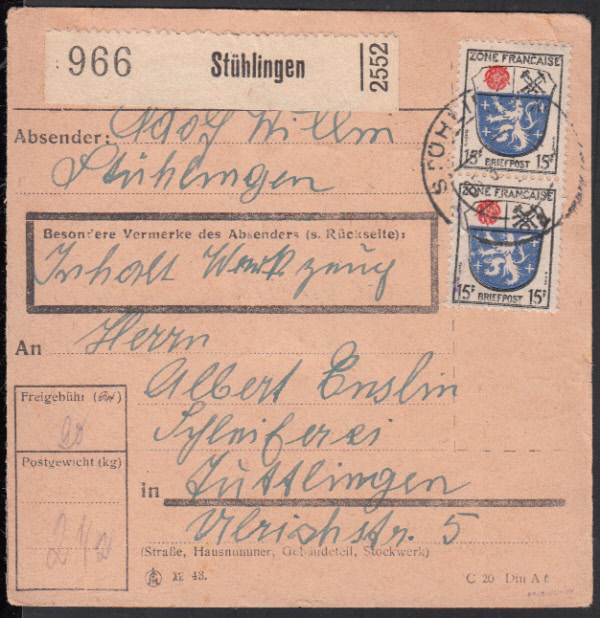 966 Stühlingen 2552
ZONE FRANCAISE
15 F BRIEFPOST 15 F
ZONE FRANCAISE
15 F BRIEFPOST 15 F
STÜHLIN
Absender: Adolf Willm
Stühlingen
Besondere Vermerke des Absenders (s. Rückseite):
Inhalt Werkzeug
An Herrn
Albert Enslin
Schleiferei
in Tuttlingen
Ulrichstr. 5
(Straße, Hausnummer, Gebäudeteil, Stockwerk)
Freigebühr
Postgewicht (kg)
2 1/2
43.
C 20 Din A 6